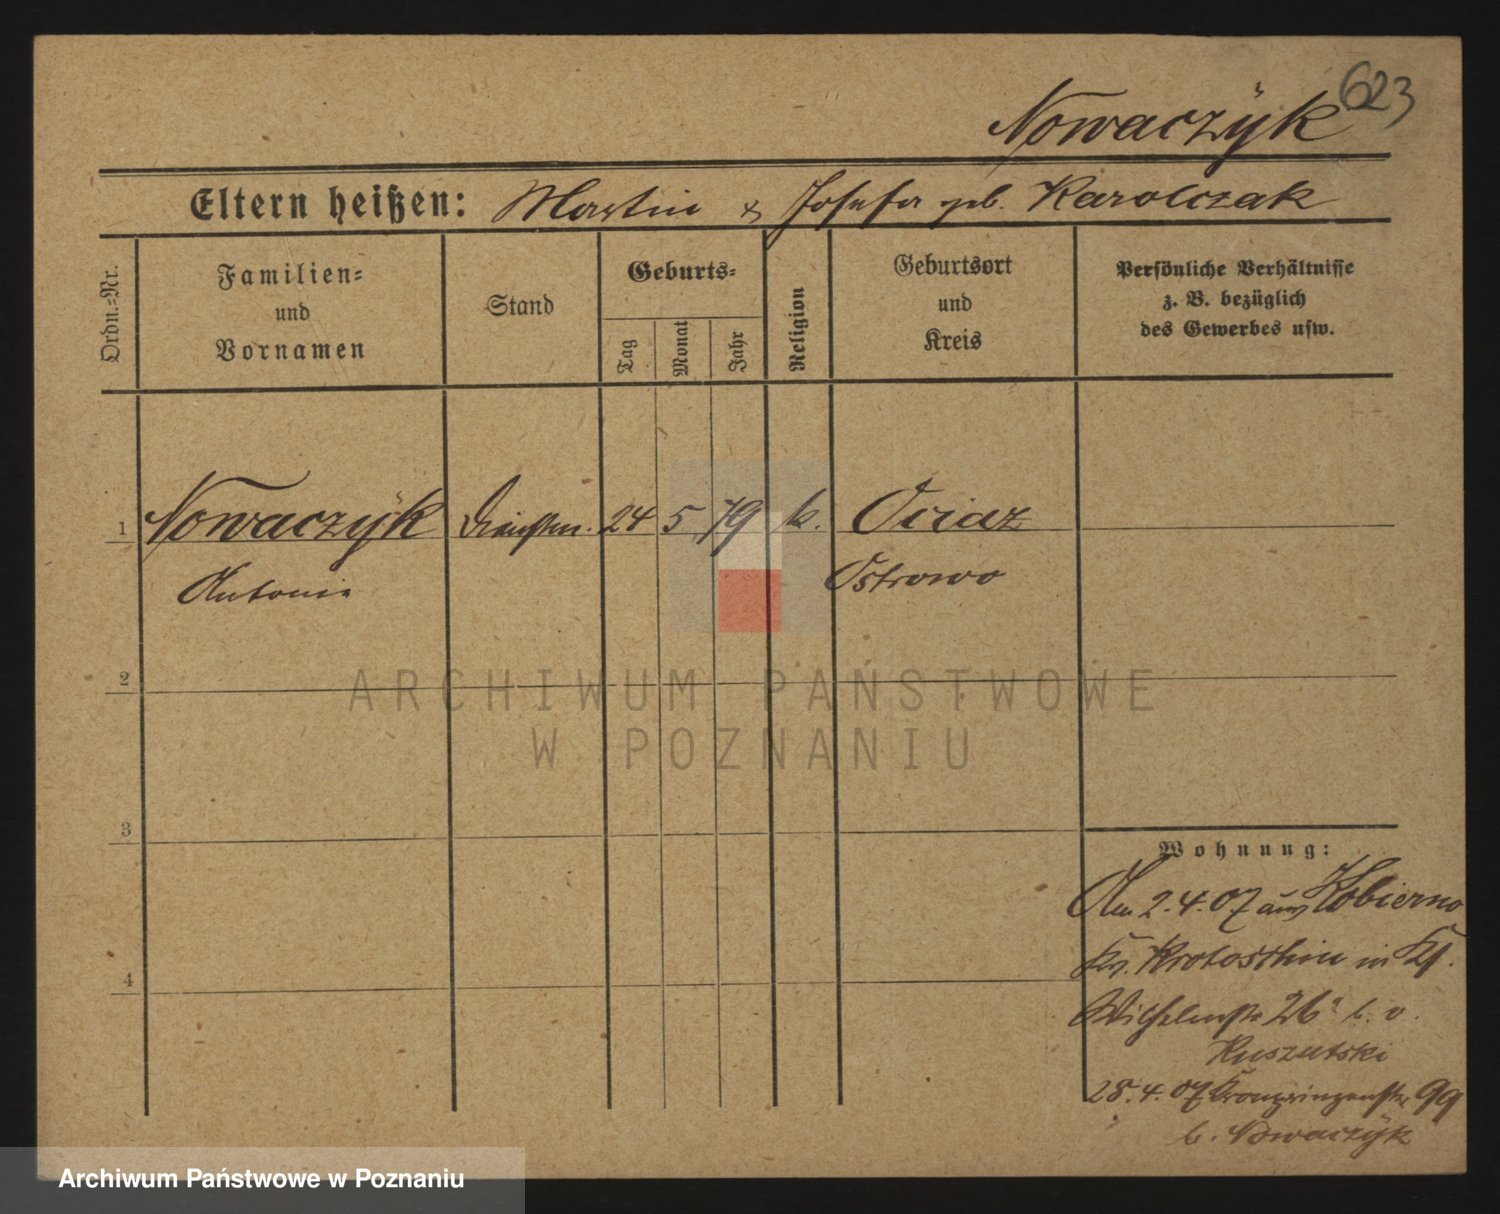 623
Nowaczÿk
Eltern heißen: Martin & Josefa geb. Karolczak
Ordn.=Nr.
Familien=
und
Vornamen
Stand
Geburts=
Tag
Monat
Jahr
Religion
Geburtsort
und
Kreis
Persönliche Verhältnisse
z. B. bezüglich
des Gewerbes usw.
1 Nowaczÿk 24 5 79 k. Ociaz
Antonie Ostrowo
2
3
4
Wohnung:
Am 2.4.07 aus Kobierno
Kr. Krotoschin in
Wilhelmstr 26
28.4.07 Kronprinzenstr 99
b. Nowaczÿk
ARCHIWUM PAŃSTWOWE
W POZNANIU
Archiwum Państwowe w Poznaniu